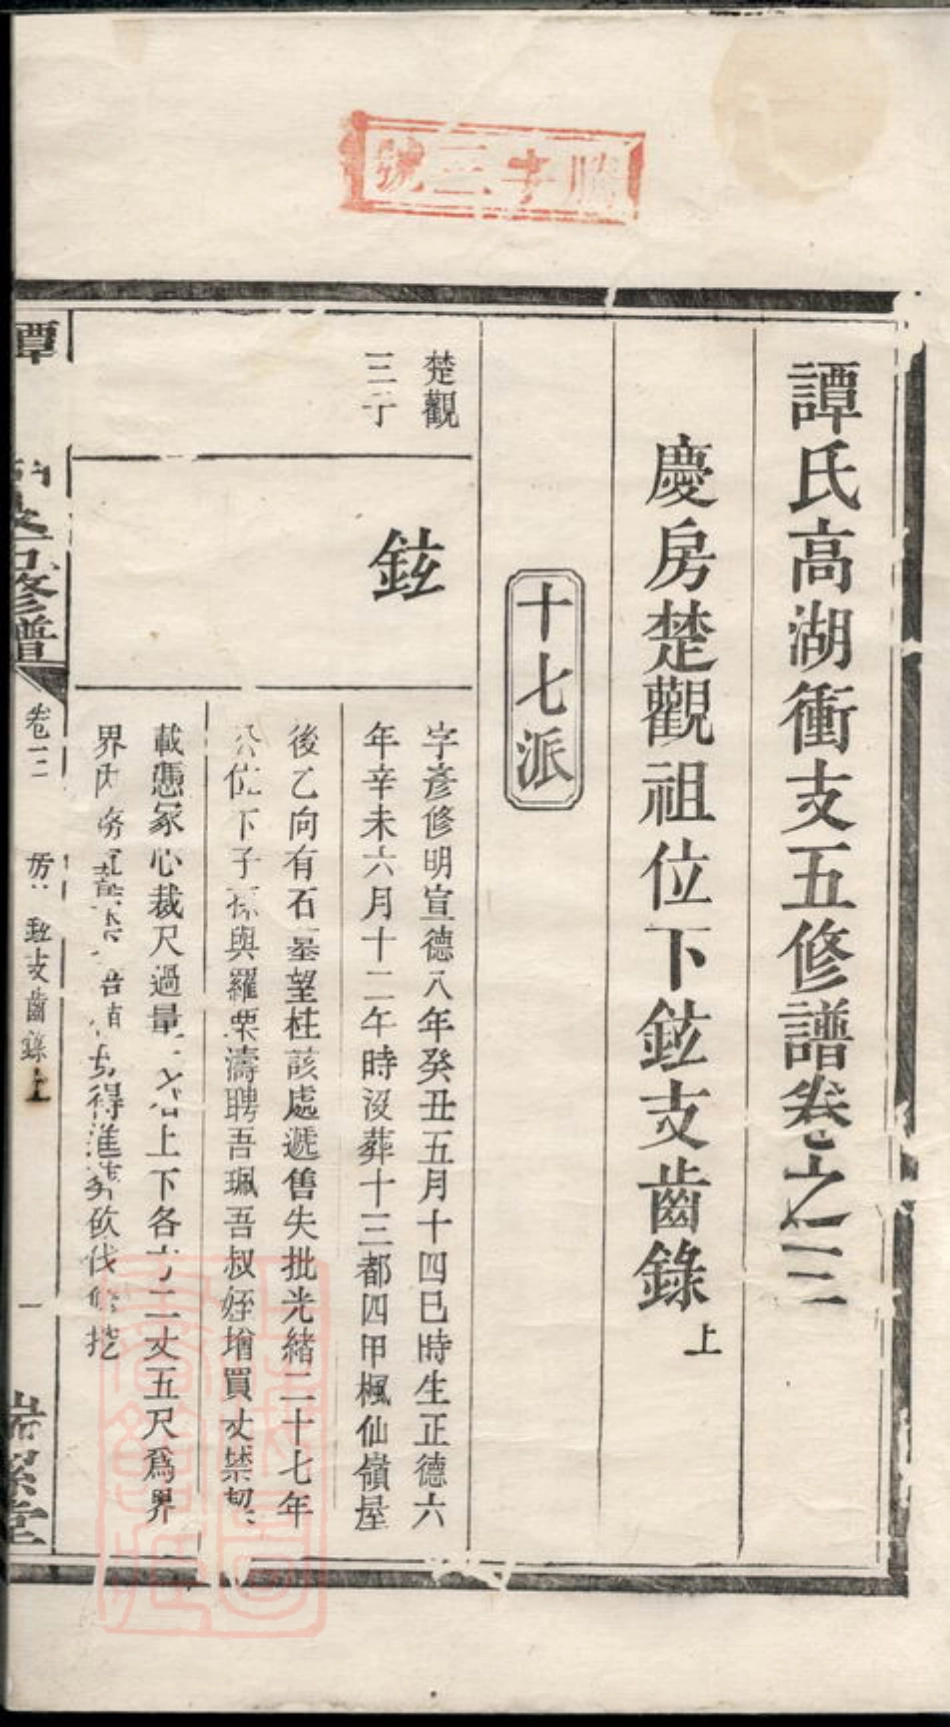 號三十
譚氏高湖衝支五修譜卷之三
慶房楚觀祖位下鉉支齒錄上
十七派
楚觀
三子
鉉
字彥修明宣德八年癸丑五月十四巳時生正德六
年辛未六月十二午時沒葬十三都四甲楓仙嶺屋
後乙向有石墓望柱該處遞售失批光緒二十七年
公位下子孫與羅栗濤聘吾珮吾叔姪增買丈禁契
載憑冢心裁尺過量上下各二丈五尺爲界
界內得進葬砍伐挖
譚
五修譜
卷三
房鉉支齒錄上
一
堂